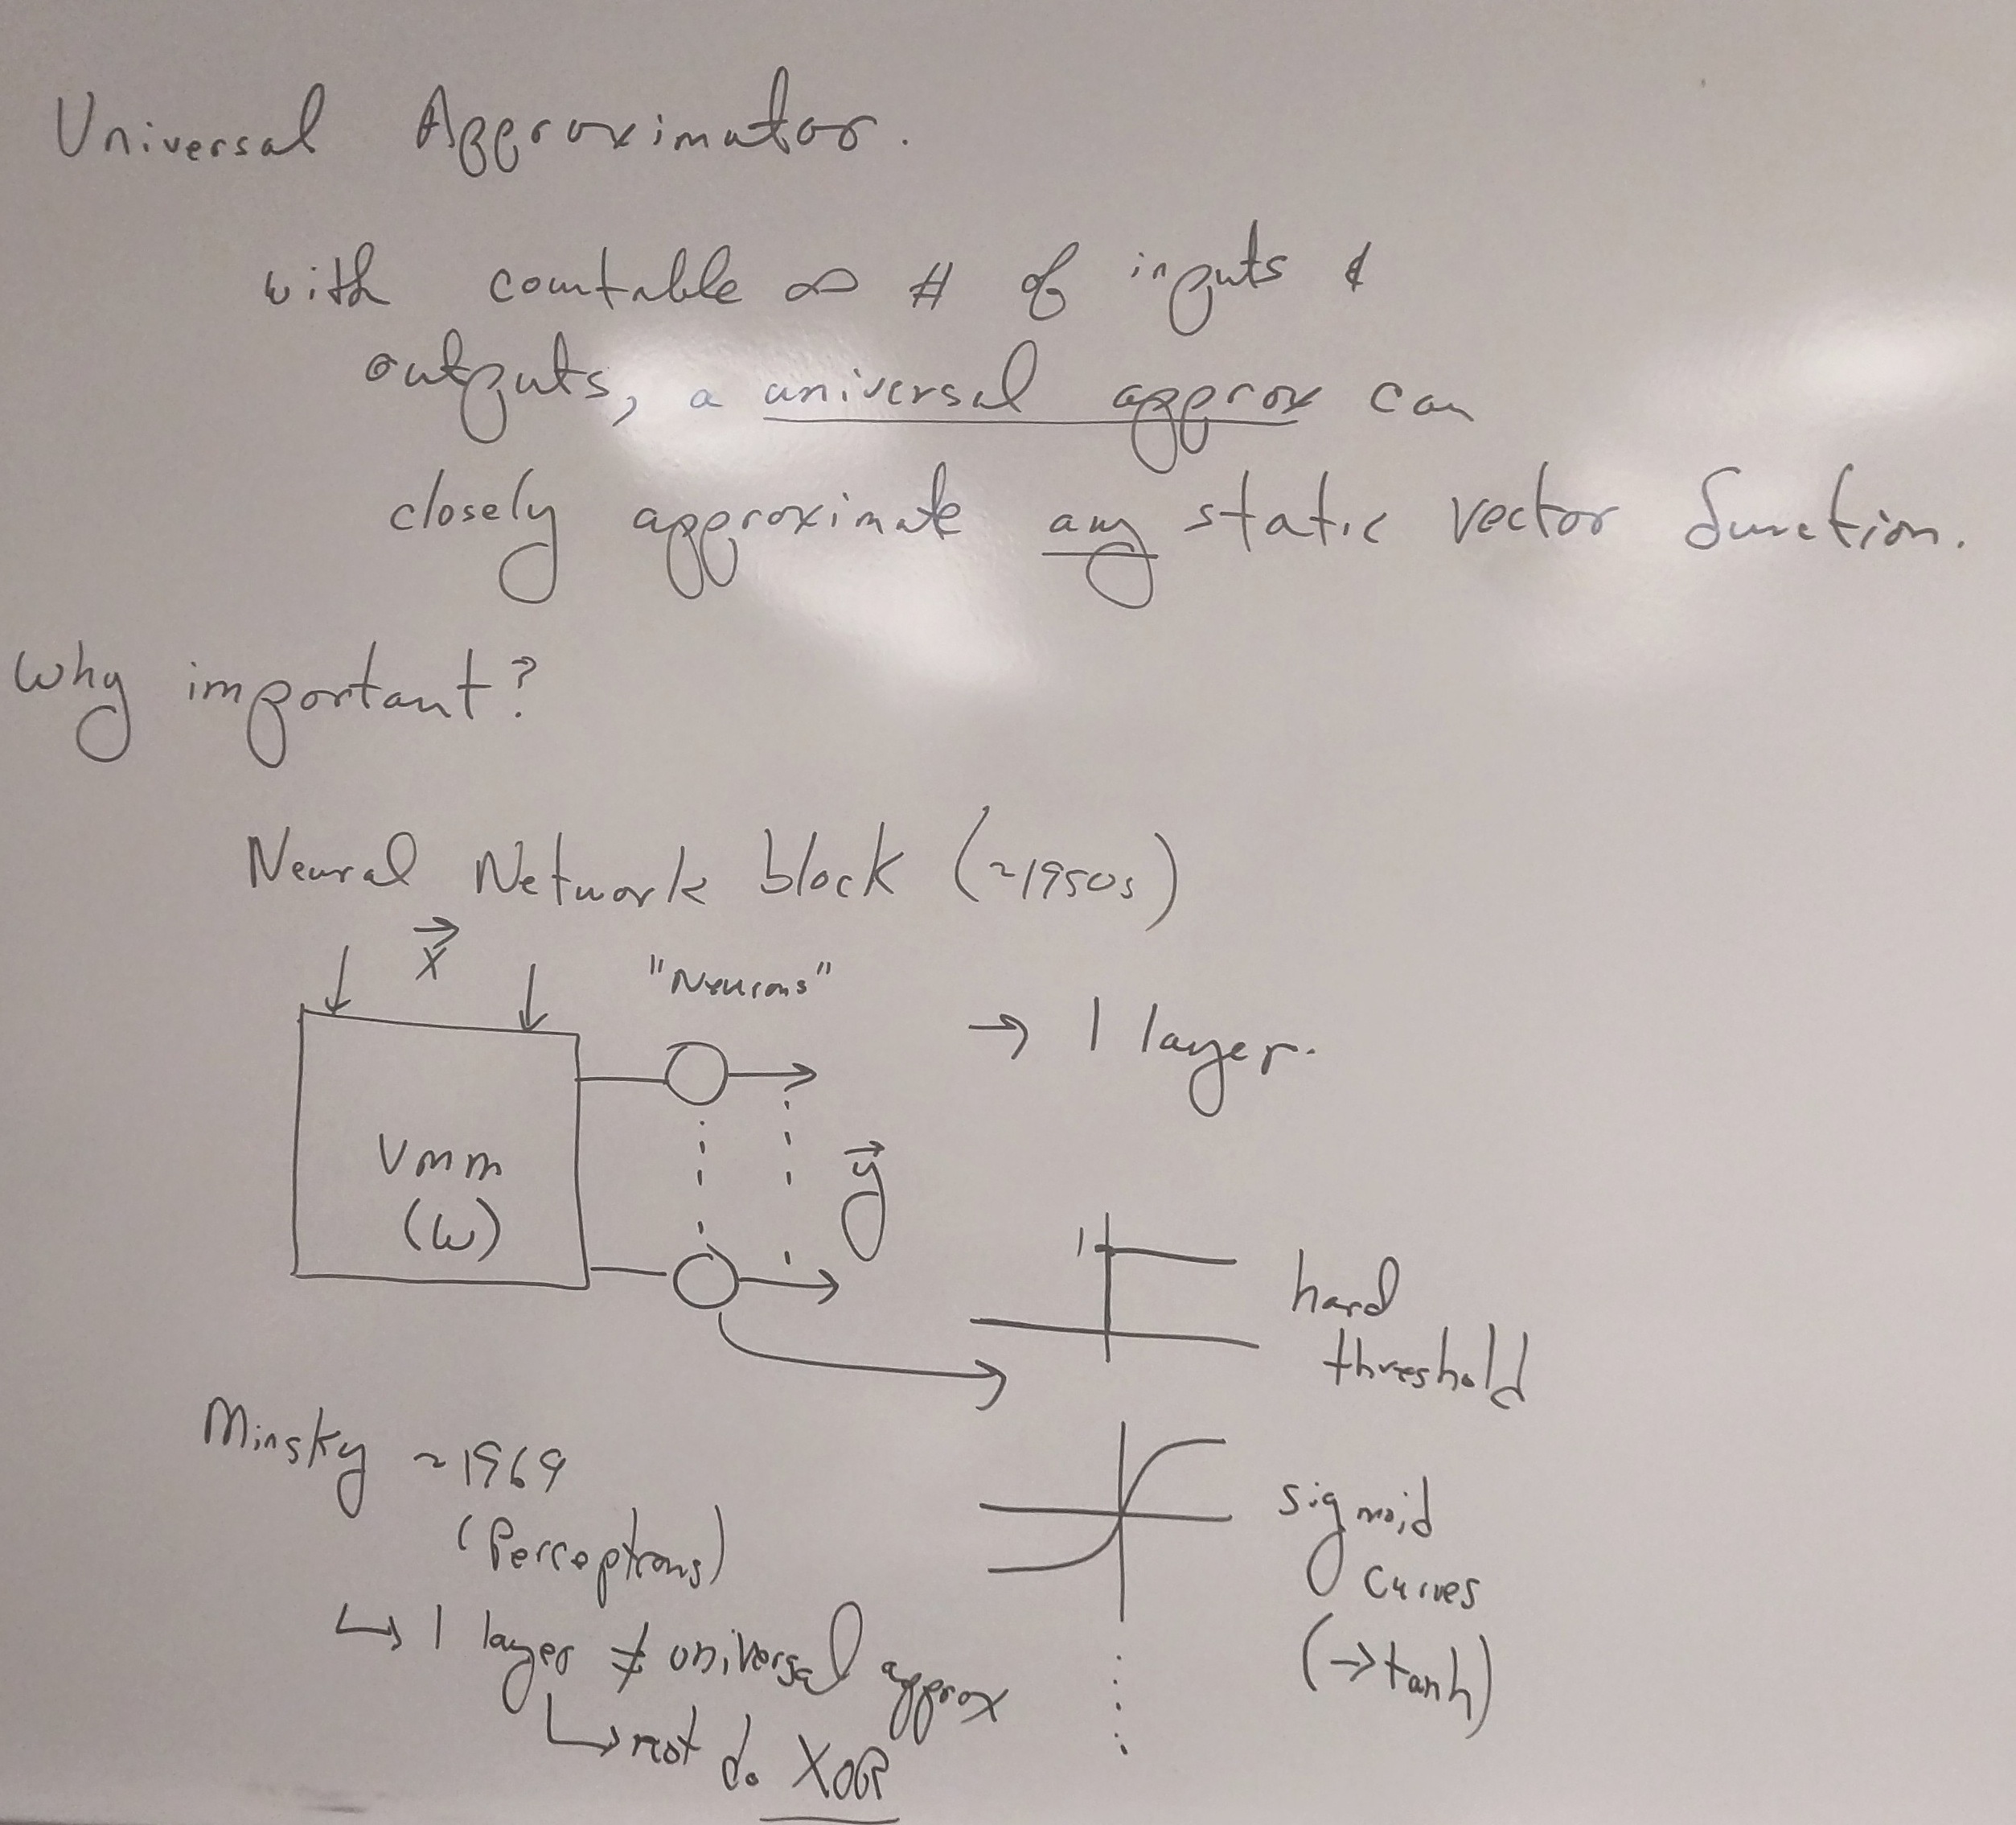 Universal Approximator.
with countable ∞ # of inputs &
outputs, a universal approx can
closely approximate any static vector function.
Why important?
Neural Network block (~1950s)
x⃗
"Neurons"
→ 1 layer.
VMM
(W)
y⃗
1
hard
threshold
sigmoid
curves
(→tanh)
Minsky ~1969
(Perceptrons)
↳ 1 layer ≠ universal approx
↳ not do XOR